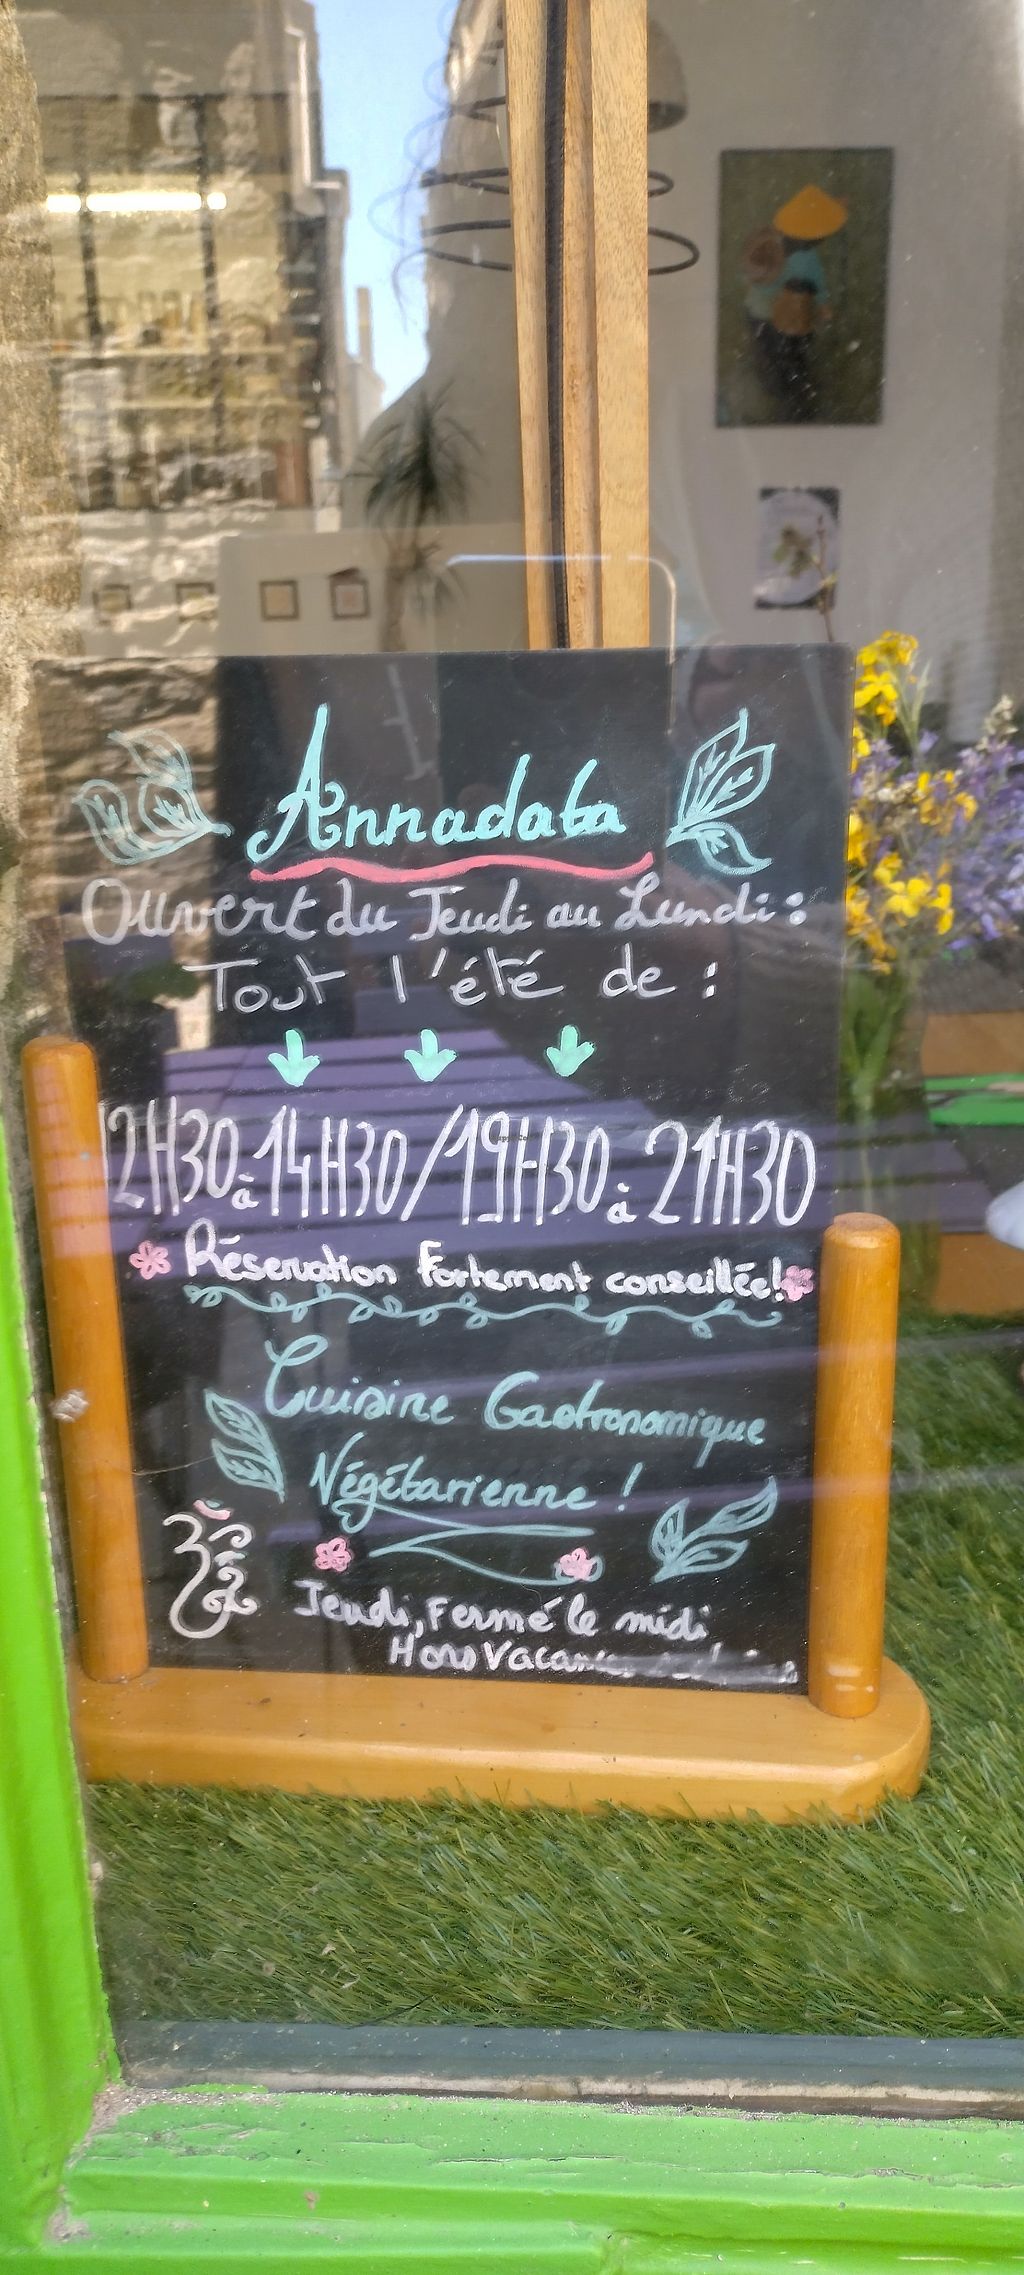 Annadata
Ouvert du Jeudi au Lundi :
Tout l'été de :
12H30 à 14H30 / 19H30 à 21H30
Réservation Fortement conseillée !
Cuisine Gastronomique
Végétarienne !
Jeudi, Fermé le midi
Hors Vacances